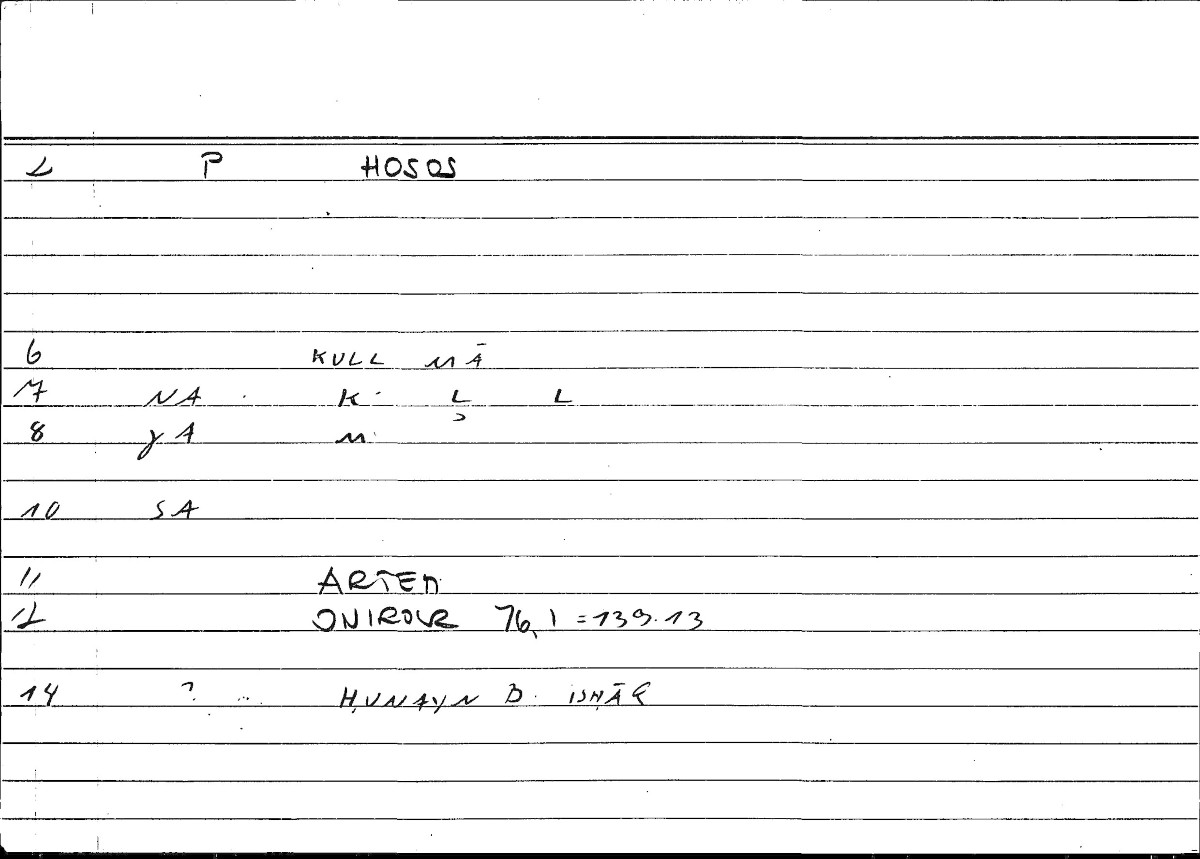 2 P HOSOS
6 KULL MĀ
7 NA K L L
8 YA M
10 SA
11 ARTEM
12 ONIROCR 76,1 = 139.13
14 ? ḤUNAYN B. ISḤĀQ